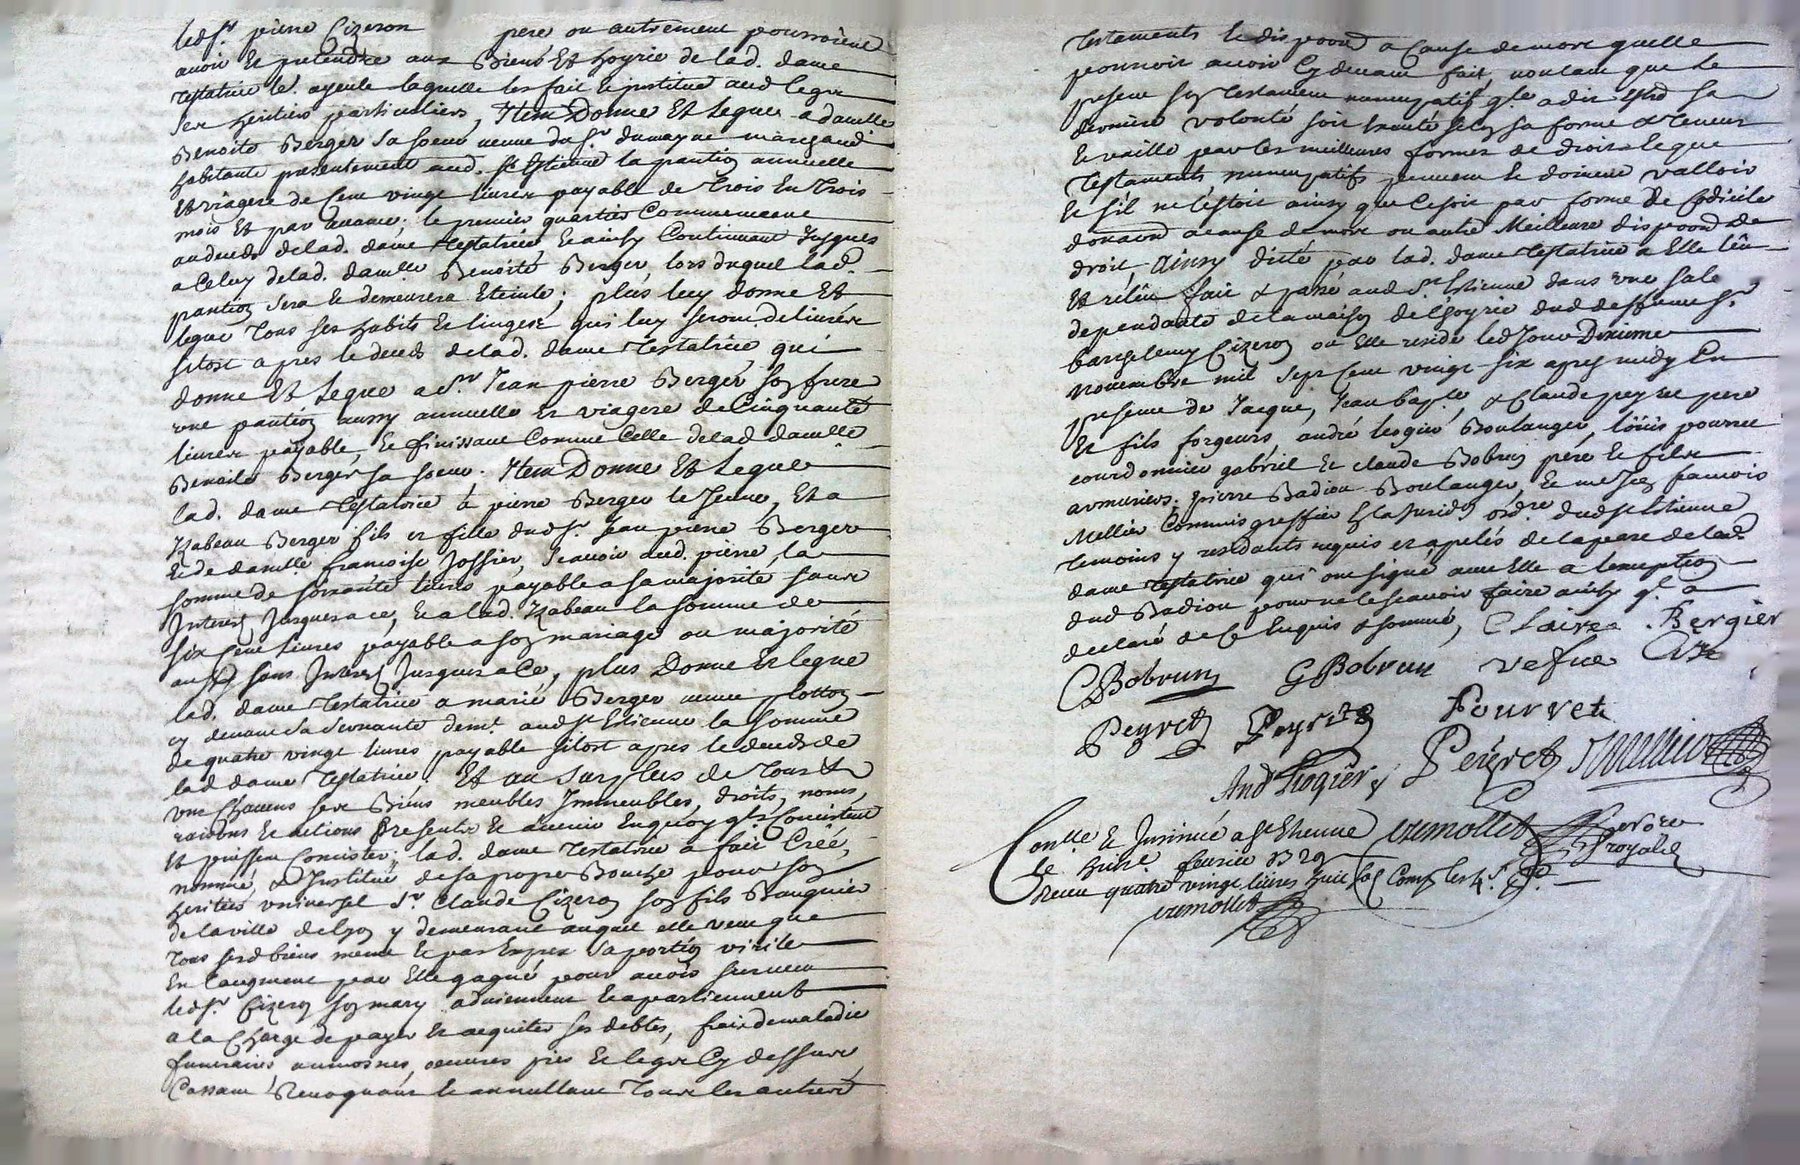 led sr. pierre Cizeron pere ou autrement pourroient
avoir et pretendre aux Biens et hoyrie de lad. dame
testatrice led. ayeule laquelle les fait et institue aud legat
ses heritiers particuliers, Item Donne et legue a damlle
Benoite Berger sa soeur veuve du sr. dumayne marchand
habitante presentement aud. st Estienne la pantion annuelle
et viagere de Cent vingt livres payable de trois En trois
mois Et par avance, le premier quartier Commencant
au deceds de lad. dame testatrice, et ainsy Continuant Jusques
a Celuy de lad. damlle Benoite Berger, lors duquel lad.
pantion sera et demeurera Eteinte; plus luy donne Et
legue tous ses habits et linges qui luy seront delivrés
sitost apres le deceds de lad. dame testatrice, qui
donne Et legue a sr. Jean pierre Berger son frere
une pantion aussy annuelle et viagere de Cinquante
livres payable, et finissant Comme Celle de lad damlle
Benoite Berger sa soeur. Item Donne Et legue
lad. dame testatrice à pierre Berger le Jeune, Et a
Izabeau Berger fils et fille dud sr. Jean pierre Berger
et de damlle françoise Jossier, scavoir aud. pierre, la
somme de soixante livres payable a sa majorité sans
Interest Jusques a ce, et a lad. Izabeau la somme de
six Cent livres payable a son mariage ou majorité
aussy sans Interest Jusques a Ce, plus Donne et legue
lad. dame testatrice a marie Berger veuve plotton
cy devant sa servante demt. aud st Estienne la somme
de quatre vingt livres payable sitost apres le deceds de
lad dame testatrice; Et au surplus de tous Et
un Chacuns ses Biens meubles Immeubles, droits, noms,
raisons et actions presents et avenir En quoy qls Consistent
et puissent Consister, lad. dame testatrice a fait Créé,
nommé, et Institué de sa propre Bouche pour son
heritier universel sr Claude Cizeron son fils Banquier
de la ville de lyon y demeurant auquel elle veut que
tous sesd biens meme et par Exprez sa portion virile
En laugment par Elle gagné pour avoir survecu
led sr. Cizeron son mary adviennent et apartiennent
a la Charge de payer et acquiter ses debtes, frais de maladie
funeraires aumosnes, oeuvres pies et legats Cy dessus
Cassant Revoquant et annullant tous les autres
testaments et dispoon a Cause de mort quelle
pourroit avoir Cy devant fait, voulant que le
present son testament nuncupatif qle a dit Estre sa
derniere volonté soit Executé selon sa forme et teneur
et vaille par les meilleures formes de droit et que
testaments nuncupatifs peuvent et doivent valloir
et sil ne l'estoit ainsy que Ce soit par forme de Codicile
donaoon a cause de mort ou autre Meilleure dispoon de
droit, Ainsy ditté par lad. dame testatrice a Elle leu
et releu fait et passé aud st Estienne dans une sale
dependante de la maison de l'hoyrie dud deffunt sr
barthelemy Cizeron ou Elle reside led Jour Dixieme
novembre mil sept Cent vingt six apres midy En
presence de Jacque, Jean bapte, et Claude peyret pere
et fils forgeurs, andré liogier Boulanger, louis pourret
courdonnier gabriel et claude Bobrun pere et fils
armuriers, pierre Badiou Boulanger, et me Jean francois
Mellier Commis greffier En la Juridon ordre dud st Estienne
temoins y residants requis et apelés de la part de lad.
dame testatrice qui ont signé avec Elle a lexeption
dud Badiou pour ne le scavoir faire ainsy ql a
declaré de Ce Enquis et sommé, Claire Bergier
CBobrun GBobrun vefve Cize
Peyret Peyret Pourret
And Liogier Peyret JMellier
Conlle et Insinué a St Etienne
le huite. fevrier 1729
vremollet
notaire
royal
Receu quatre vingt livres huit sols Compris les 4 s. p l.
vremollet